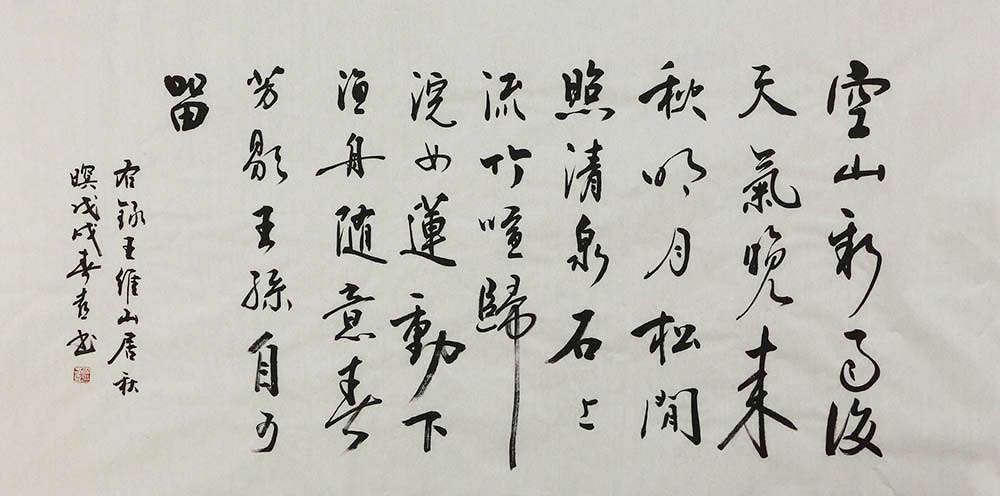 空山新雨後
天氣晚来
秋明月松間
照清泉石上
流竹喧歸
浣女蓮動下
渔舟随意春
芳歇王孫自可
留
右録王維山居秋
暝戊戌春书